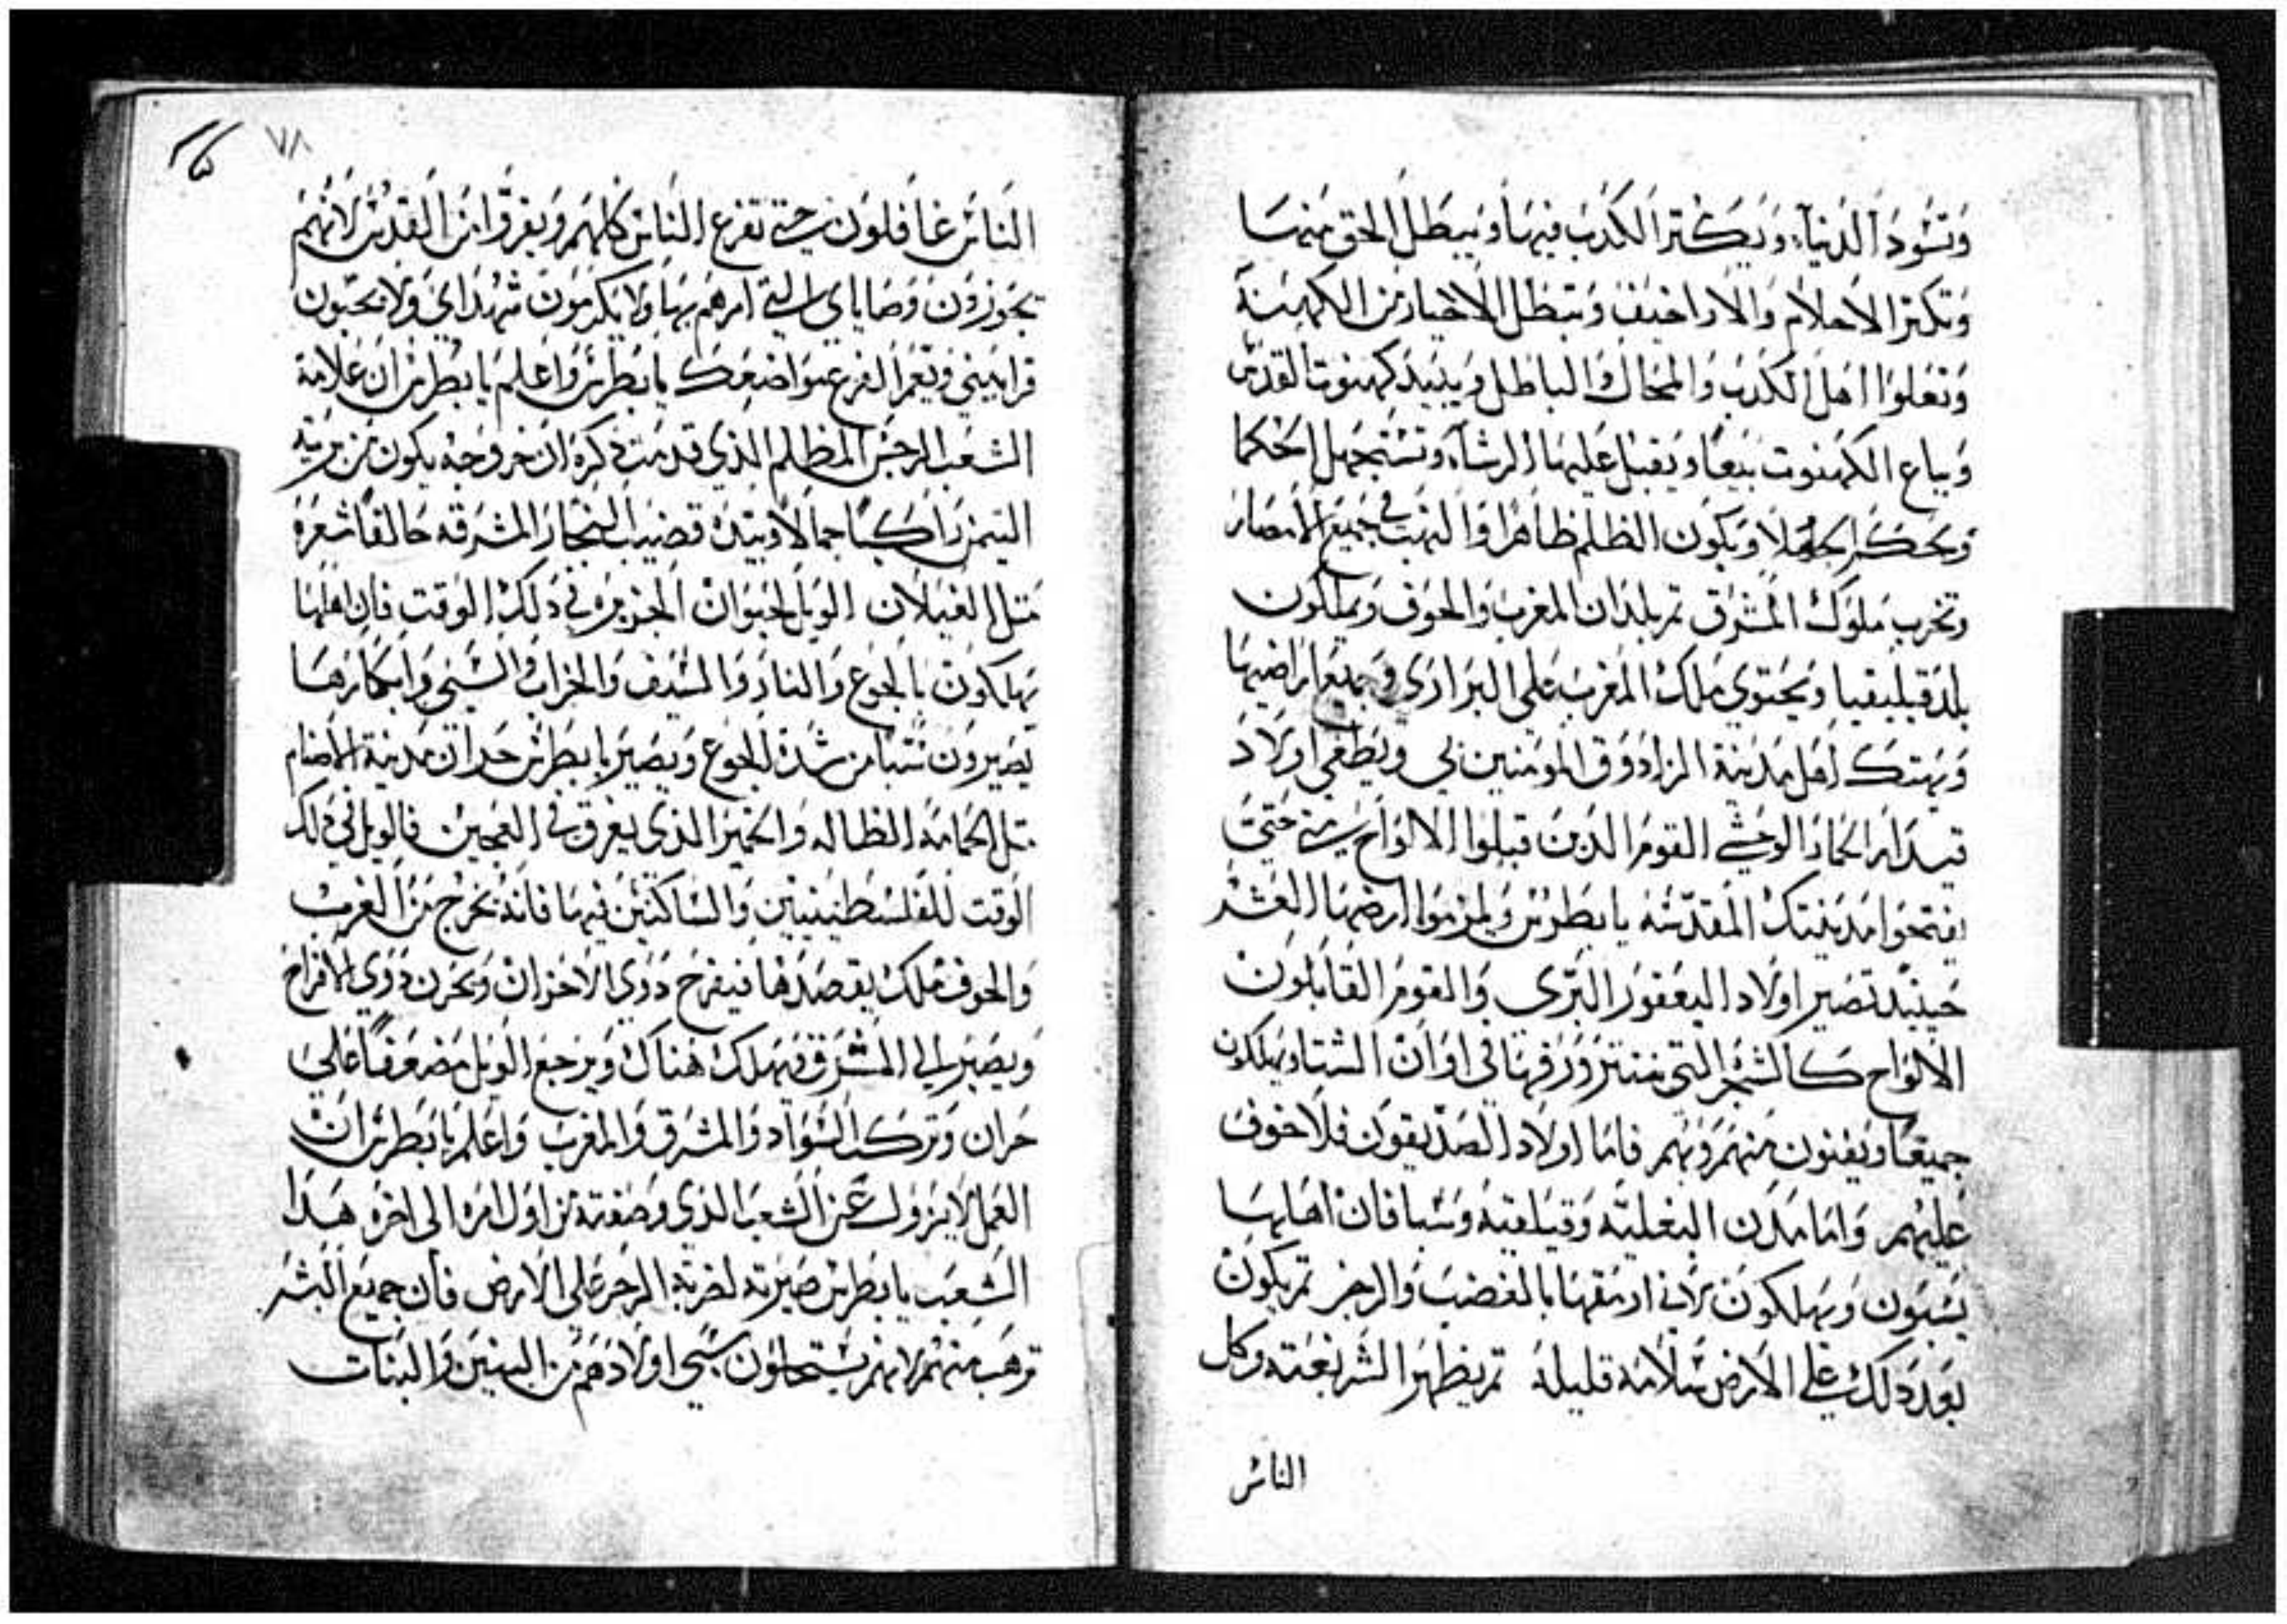 وتسود الدنيا ويكتر الكدب فيها ويبطل الحق منها
وتكتر الاحلام والاراجيف وتبطل الاخيار من الكهنة
وتعلوا اهل الكدب والمحال والباطل ويبيد كهنوت القدس
ويباع الكهنوت بيعا ويقبل عليها الرشا وتستجهل الحكما
وتحكم الجهلا ويكون الظلم ظاهرا والنهب في جميع الامصار
وتخرب ملوك المشرق تم بلدان المغرب والجوف ويملكون
بلد قيليقيا ويحتوي ملك المغرب علي البراري وجميع اراضيها
ويهتك اهل مدينة المزاد وق المومنين بي ويطغي اولاد
قيدار الحمار الوحشي القوم الدين قبلوا الالواح حتي
يفتحوا مدينتك المقدسه يا بطرس ارضها العشر
حينيد تصير اولاد اليعفور البري والقوم القابلون
الالواح كالشجر التي ينتتر ورقها في اوان الشتا ويهلكون
جميعا ويفنون منهم وبهم فاما اولاد الصديقون فلا خوف
عليهم واما مدن وقيلقيه وسبا فان اهلها
يسبون ويهلكون لاني ارمقها بالغضب والرجز تم يكون
بعد دلك علي الارض سلامة قليلة تم يظهر الشر بغتة وكل
الناس
٧٨
الناس غافلون حتي تفزع الناس كلهم ويفرقوا من القديس لانهم
يجوزون وصاياي التي امرهم بها ولا يكرمون شهداي ولا يحبون
قرابيني ويعم الفزع مواضعك يا بطرس واعلم يا بطرس ان علامة
الشعب الرجس المظلم الذي قدمت دكره ان خروجه يكون من برية
التيمن راكبا جمالا وبيده قضيب حالقا شعره
متل الغيلان الويل لحيوان الجزيره في دلك الوقت فان اهلها
يهلكون بالجوع والنار والسيف والخراب والسبي وابكارها
يصيرون سبيا من شدة الجوع ويصير يا بطرس حران مدينة الاصنام
متل الحمامة الظاله والخمير الذي يغرق في العجين فالويل في دلك
الوقت للفلسطينيين والساكنين فيها فانه يخرج من الغرب
والجوف ملك يقصدها فيفرح دوي الاحزان ويحزن دوي الافراح
ويصير الي المشرق فيهلك هناك ويرجع الويل مضعوفا علي
حران وتركب السواد والمشرق والمغرب واعلم يا بطرس ان
العمل لا يزول عن الشعب الذي وصفته من اول امره الي اخره هدا
الشعب يا بطرس صيرته لضربة الرجز علي الارض فان جميع البشر
ترهب منهم لانهم يستحلون سبي اولادهم من البنين والبنات